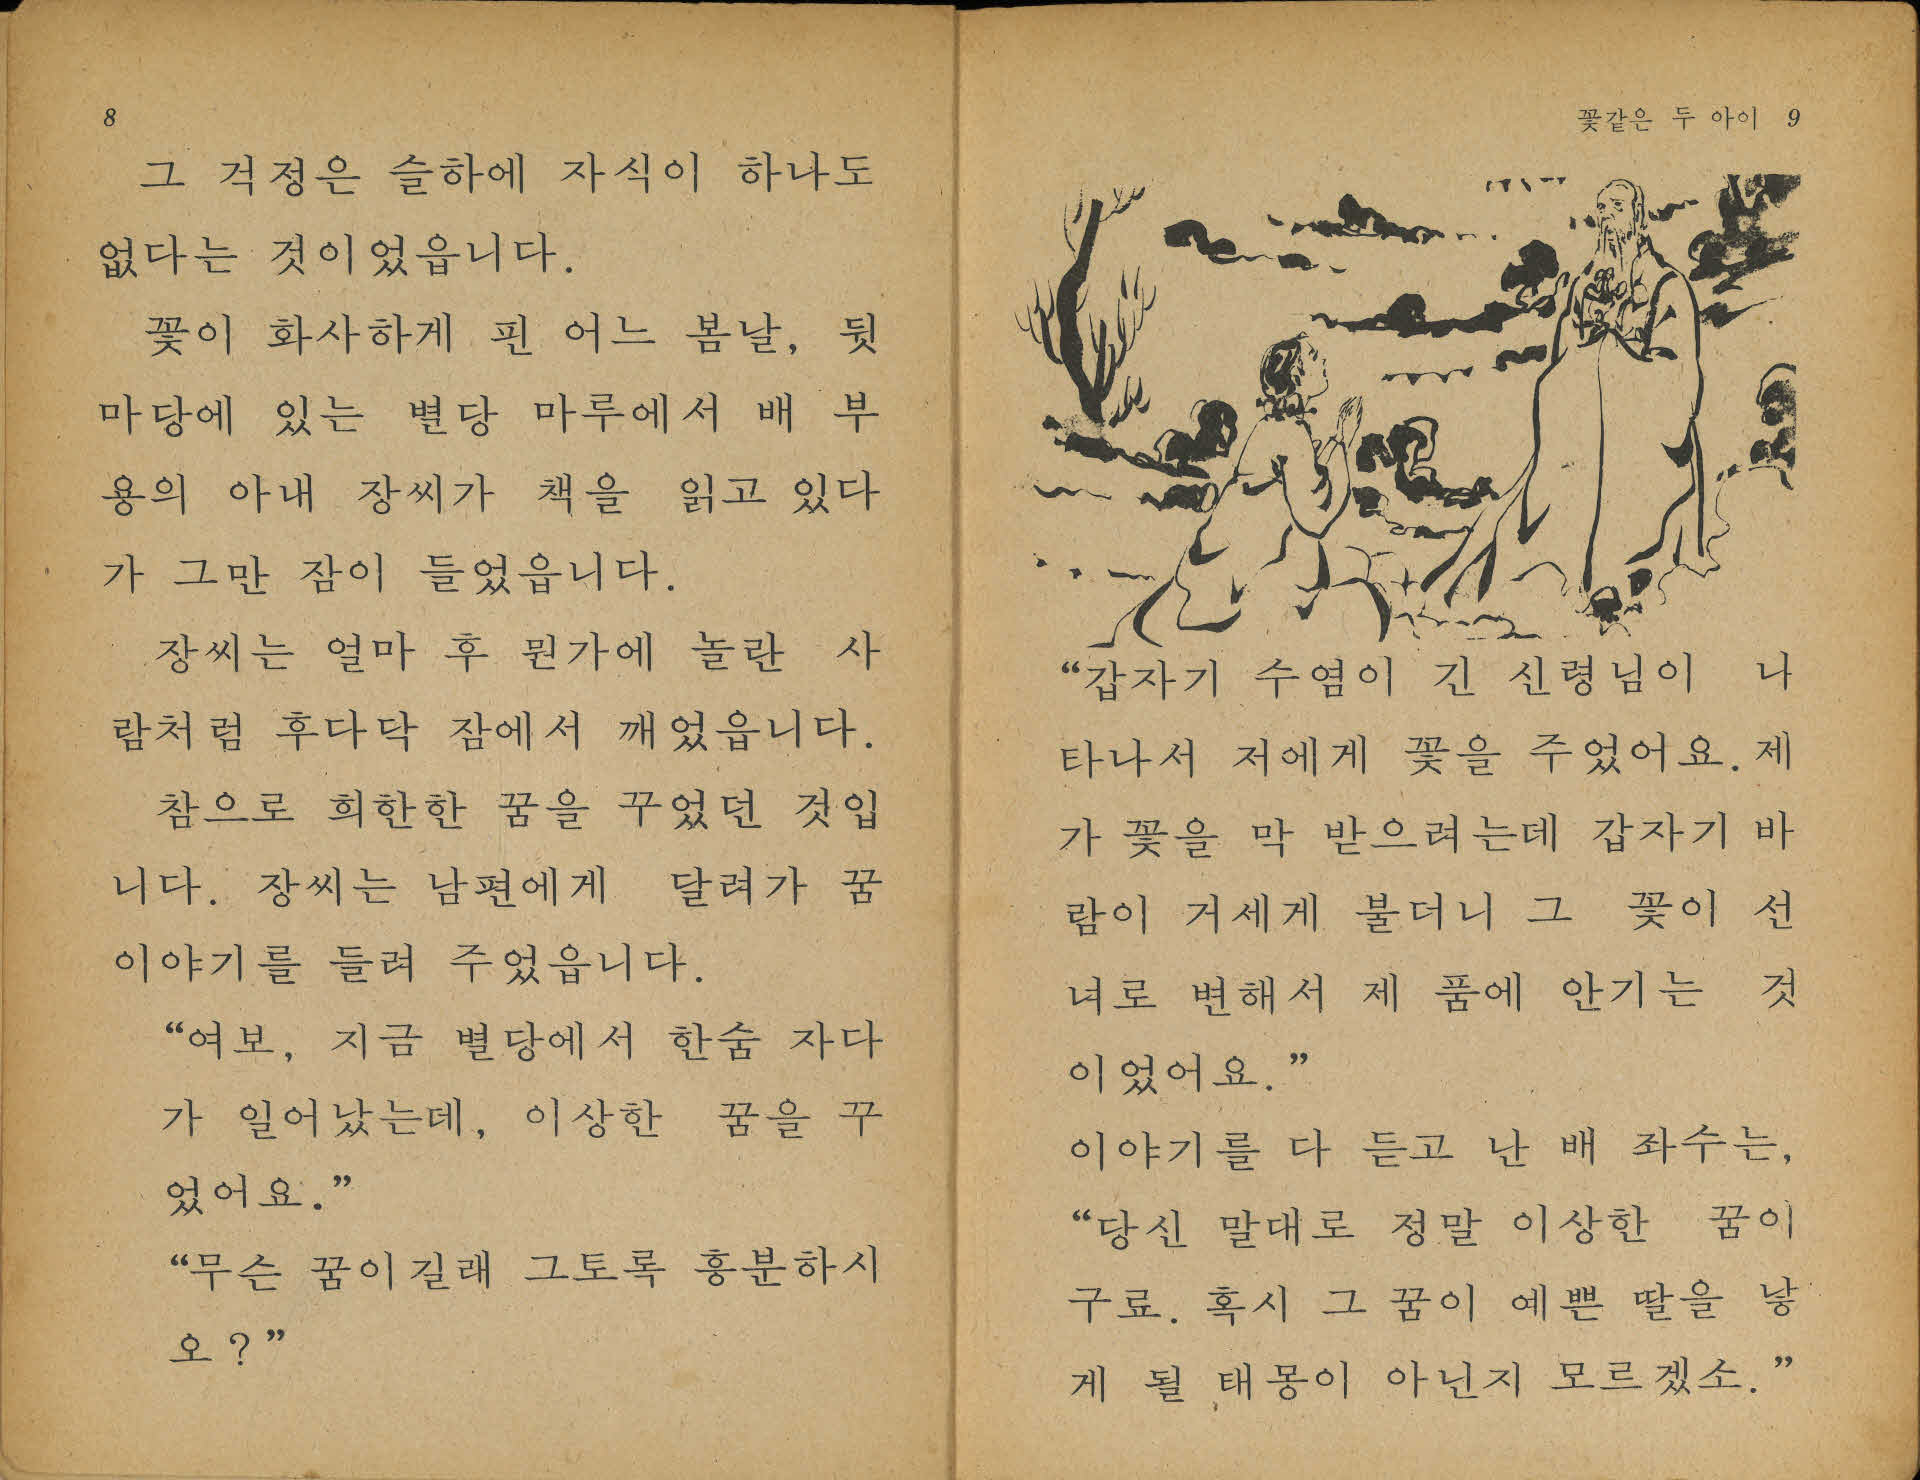 8
그 걱정은 슬하에 자식이 하나도
없다는 것이었읍니다.
꽃이 화사하게 핀 어느 봄날, 뒷
마당에 있는 별당 마루에서 배 부
용의 아내 장씨가 책을 읽고 있다
가 그만 잠이 들었읍니다.
장씨는 얼마 후 뭔가에 놀란 사
람처럼 후다닥 잠에서 깨었읍니다.
참으로 희한한 꿈을 꾸었던 것입
니다. 장씨는 남편에게 달려가 꿈
이야기를 들려 주었읍니다.
“여보, 지금 별당에서 한숨 자다
가 일어났는데, 이상한 꿈을 꾸
었어요.”
“무슨 꿈이길래 그토록 흥분하시
오?”
꽃같은 두 아이 9
“갑자기 수염이 긴 신령님이 나
타나서 저에게 꽃을 주었어요. 제
가 꽃을 막 받으려는데 갑자기 바
람이 거세게 불더니 그 꽃이 선
녀로 변해서 제 품에 안기는 것
이었어요.”
이야기를 다 듣고 난 배 좌수는,
“당신 말대로 정말 이상한 꿈이
구료. 혹시 그 꿈이 예쁜 딸을 낳
게 될 태몽이 아닌지 모르겠소.”